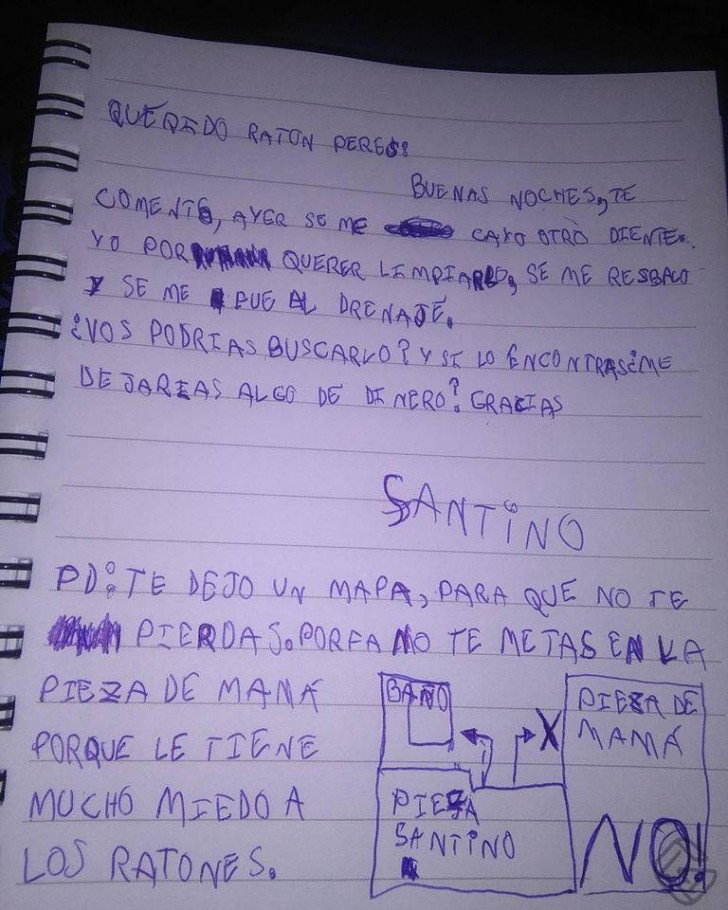 QUERIDO RATON PERES:
BUENAS NOCHES, TE
COMENTO, AYER SE ME CAYO OTRO DIENTE.
YO POR QUERER LIMPIARLO, SE ME RESBALO
Y SE ME FUE AL DRENAJE.
¿VOS PODRIAS BUSCARLO? Y SI LO ENCONTRAS ¿ME
DEJARIAS ALGO DE DINERO? GRACIAS
SANTINO
PD: TE DEJO UN MAPA, PARA QUE NO TE
PIERDAS. PORFA NO TE METAS EN LA
PIEZA DE MAMÁ
PORQUE LE TIENE
MUCHO MIEDO A
LOS RATONES.
BAÑO
X
PIEZA DE
MAMÁ
NO!
PIEZA
SANTINO